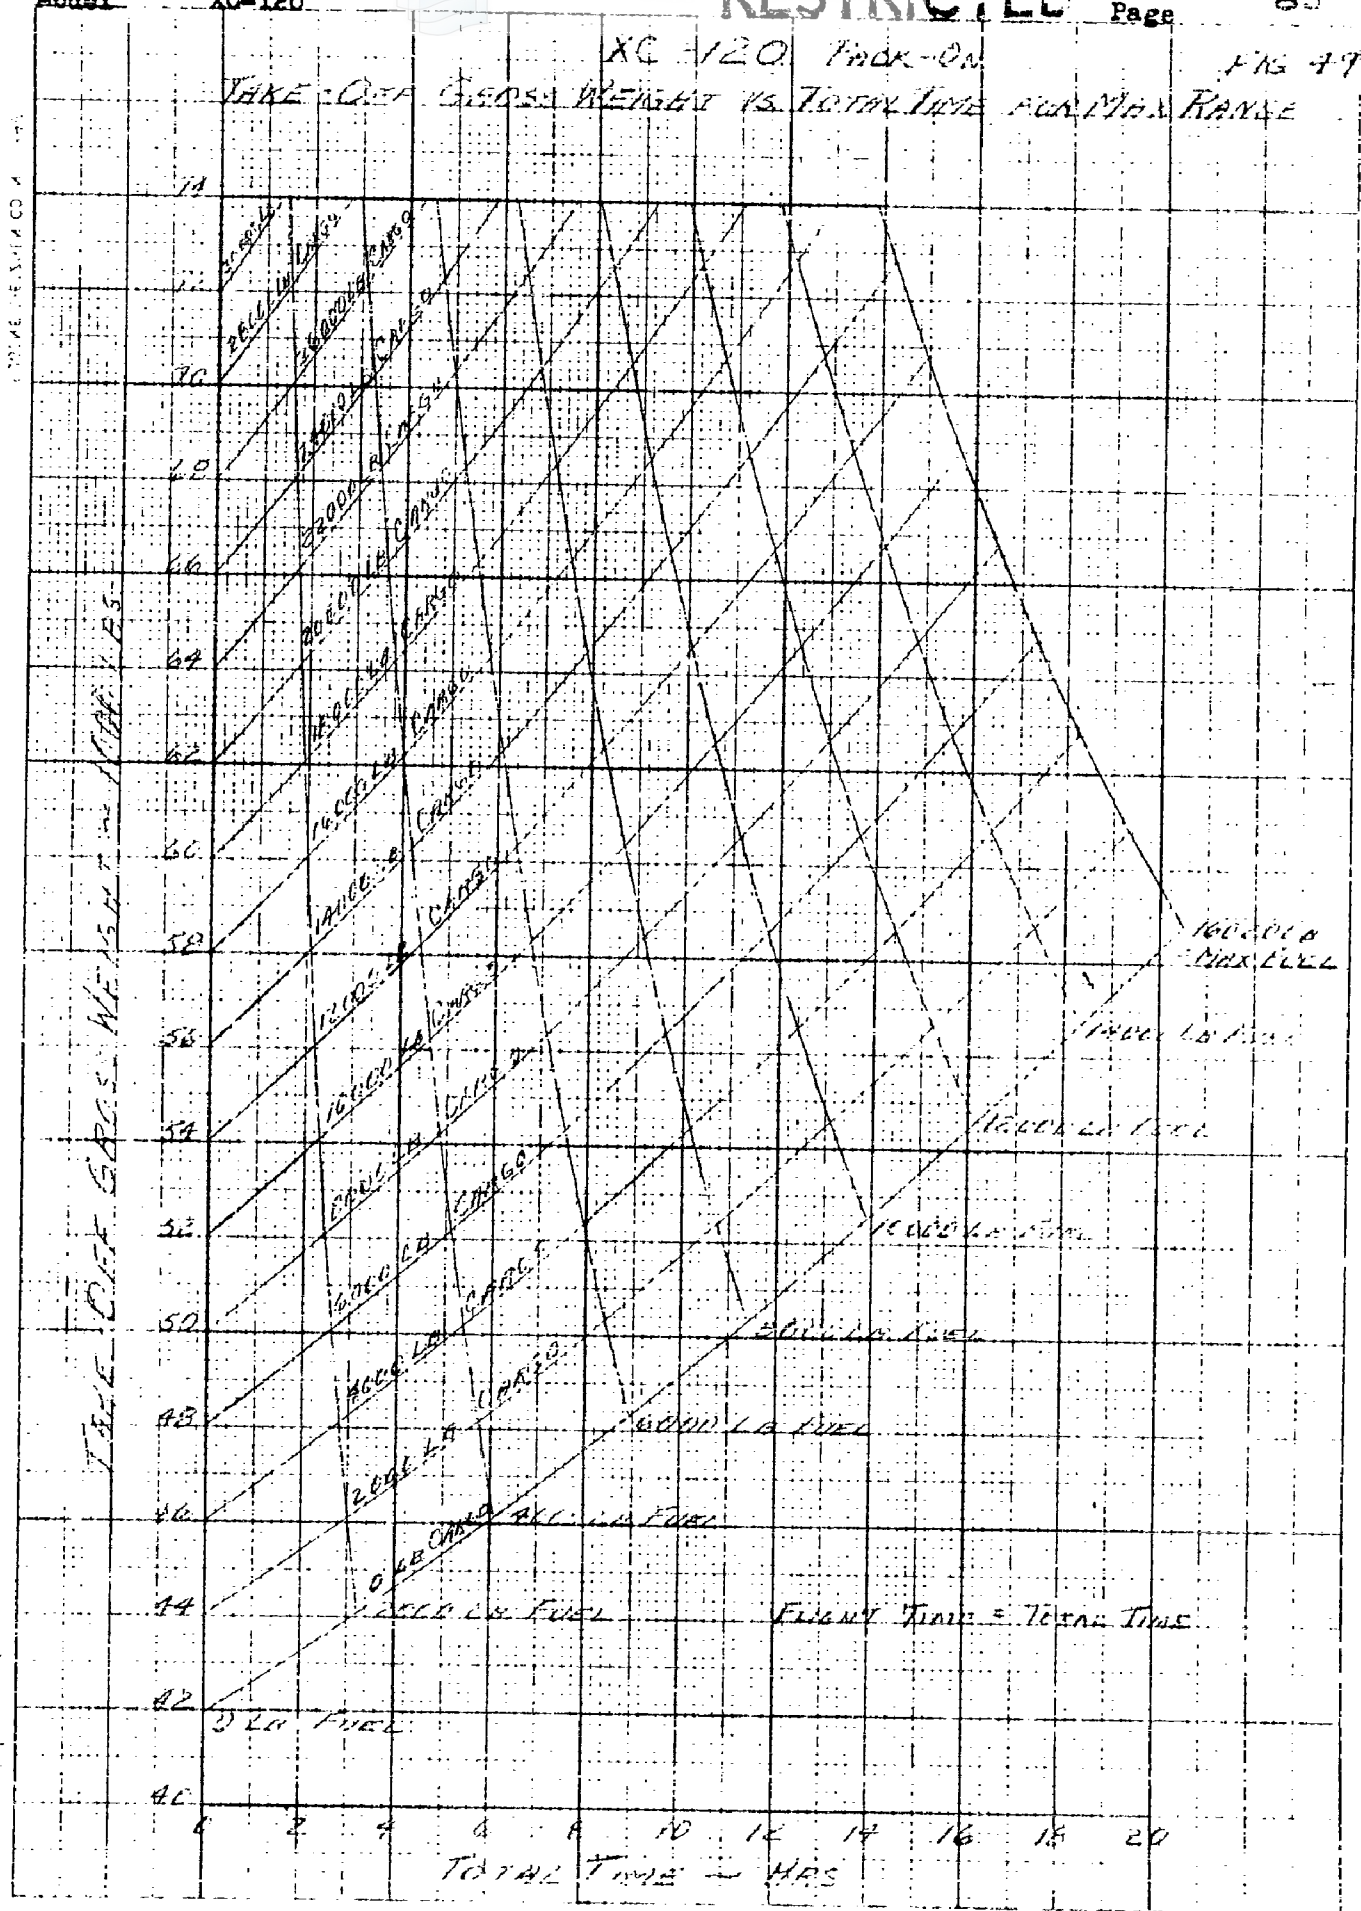 Model XC-120
RESTRICTED
Page
XC-120 PACK-ON
FIG 49
TAKE-OFF GROSS WEIGHT VS TOTAL TIME FOR MAX RANGE
TAKE-OFF GROSS WEIGHT ~ LBS
74
70
68
66
64
62
60
58
56
54
52
50
48
46
44
42
40
28000 LB CARGO
26000 LB CARGO
24000 LB CARGO
22000 LB CARGO
20000 LB CARGO
18000 LB CARGO
16000 LB CARGO
14000 LB CARGO
12000 LB CARGO
10000 LB CARGO
8000 LB CARGO
6000 LB CARGO
4000 LB CARGO
2000 LB CARGO
0 LB CARGO
16000 LB
MAX FUEL
14000 LB FUEL
12000 LB FUEL
10000 LB FUEL
8000 LB FUEL
6000 LB FUEL
4000 LB FUEL
2000 LB FUEL
0 LB FUEL
FLIGHT TIME = TOTAL TIME
0 2 4 6 8 10 12 14 16 18 20
TOTAL TIME ~ HRS